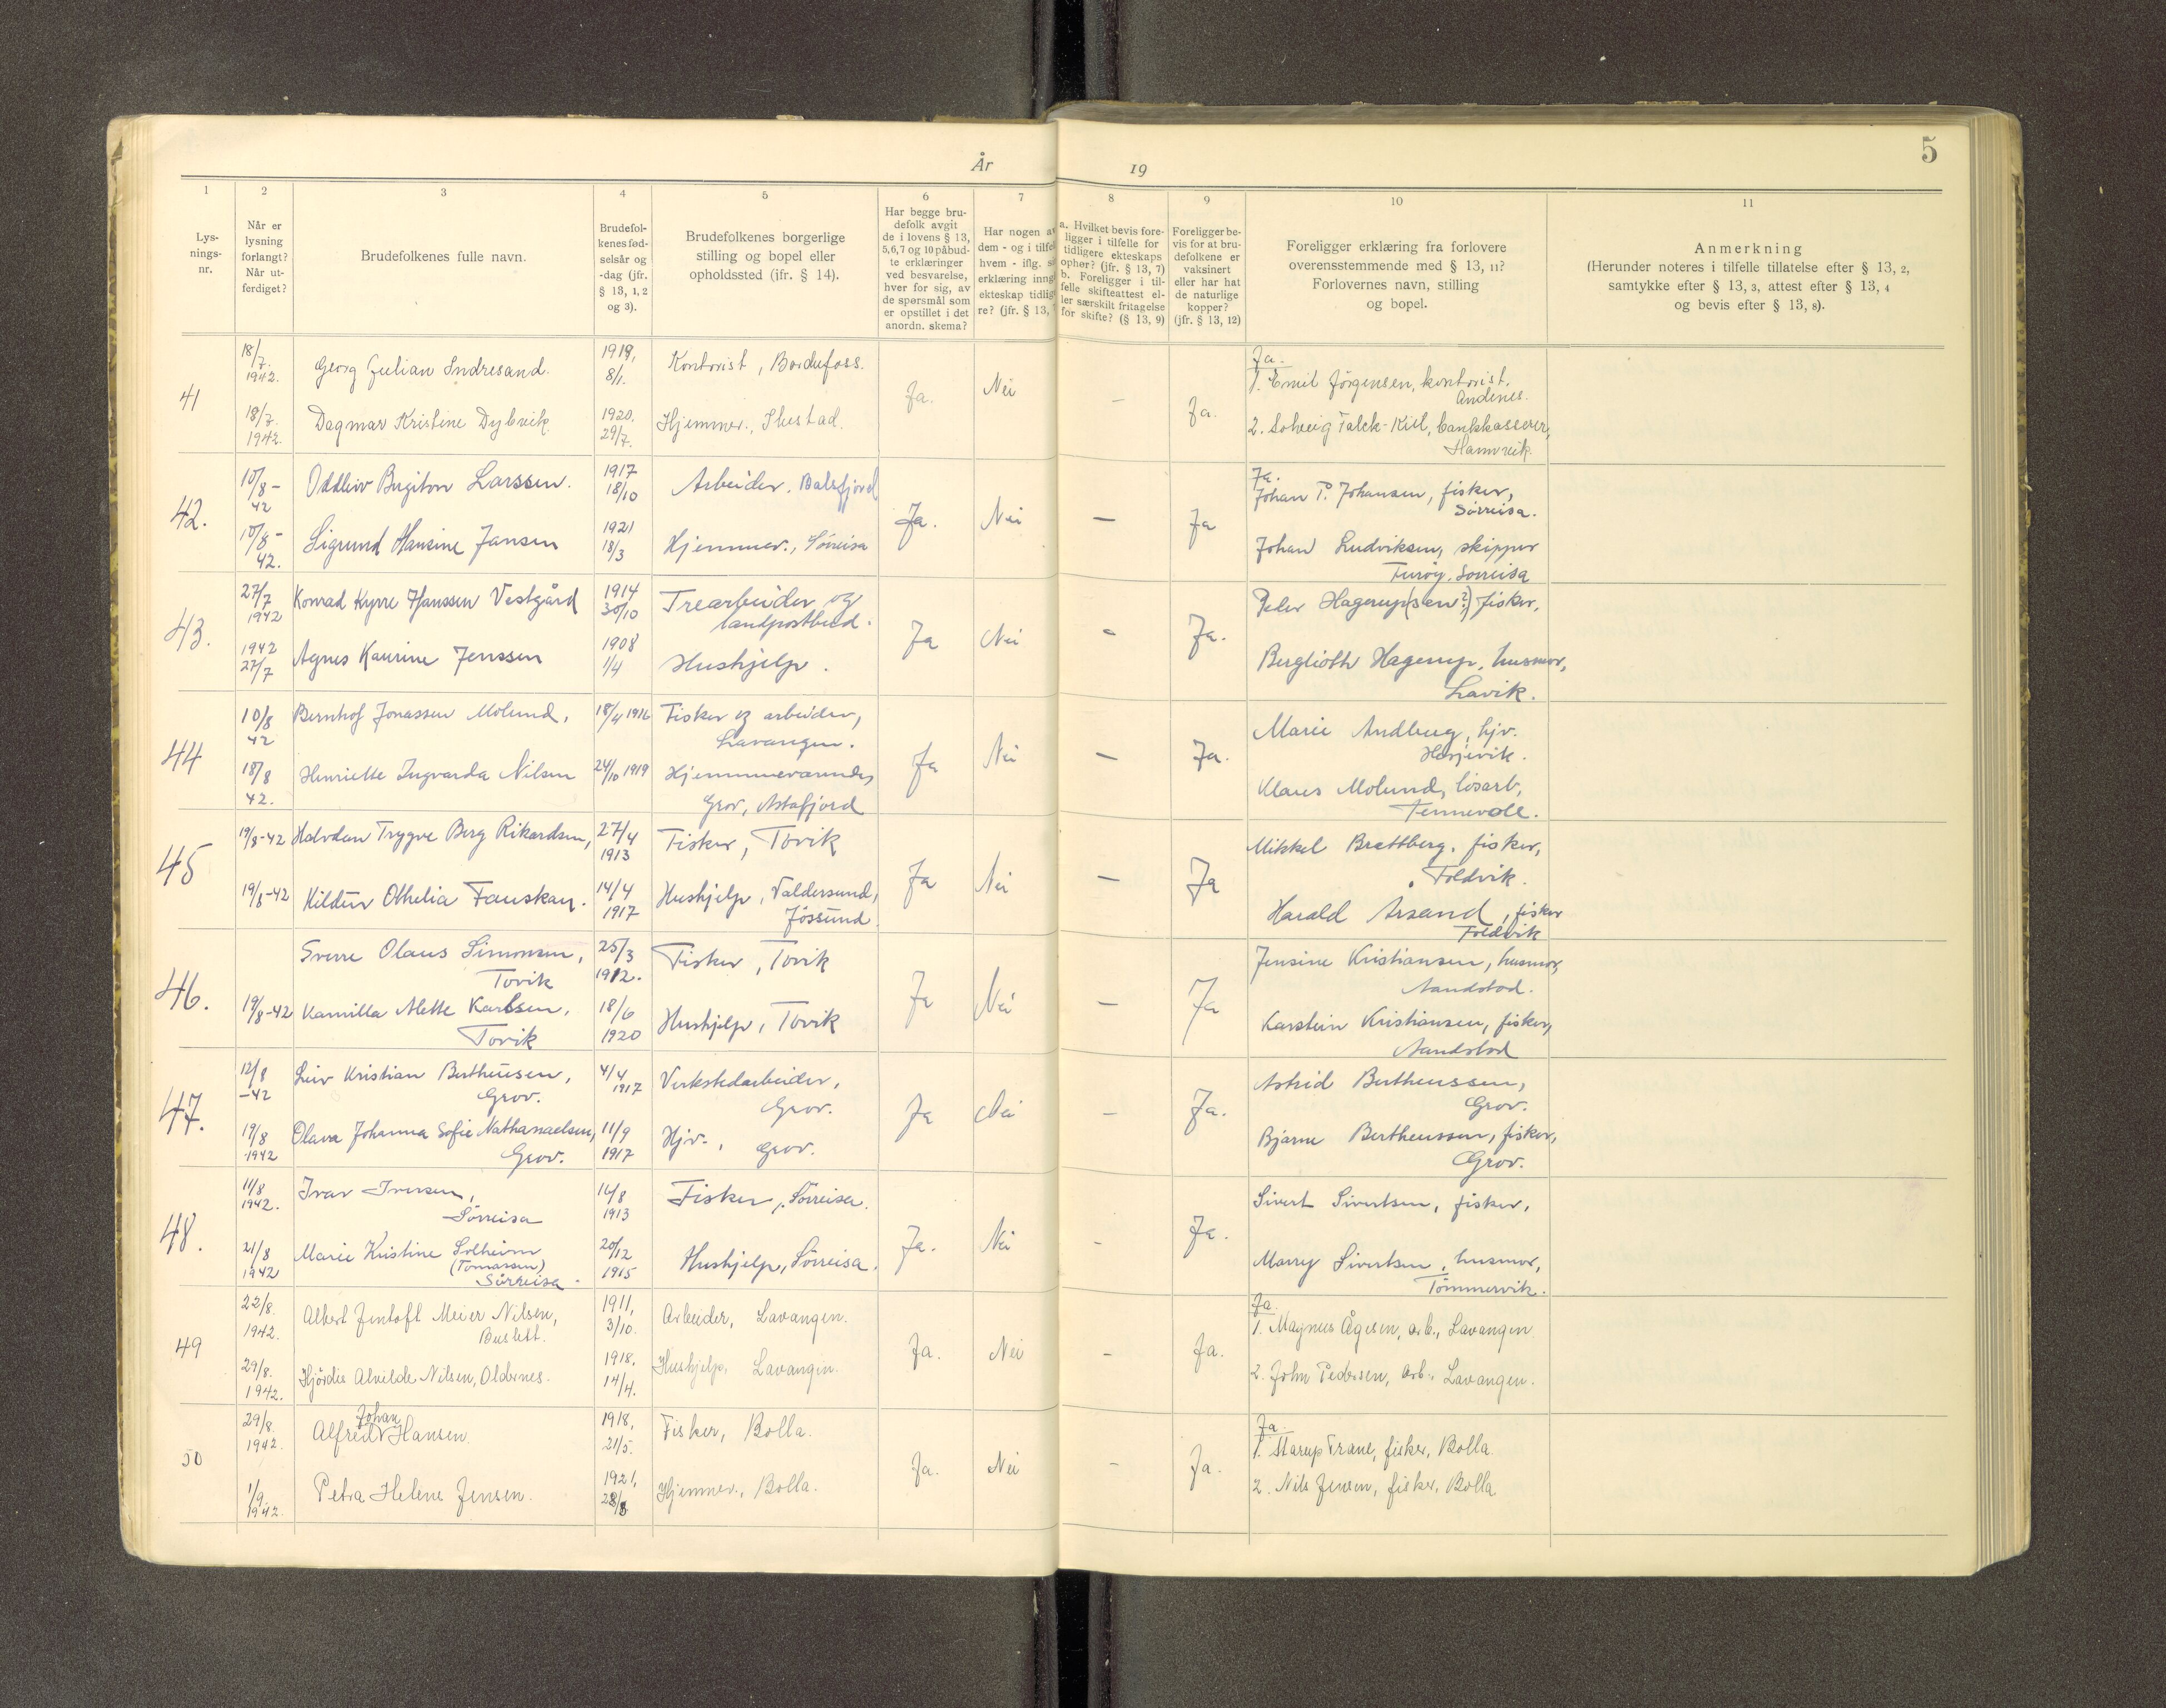 5
År 19
1 2 3 4 5 6 7 8 9 10 11
Lys-
nings-
nr.
Når er
lysning
forlangt?
Når ut-
ferdiget?
Brudefolkenes fulle navn.
Brudefol-
kenes fød-
selsår og
-dag (jfr.
§ 13, 1, 2
og 3).
Brudefolkenes borgerlige
stilling og bopel eller
opholdssted (jfr. § 14).
Har begge bru-
defolk avgit
de i lovens § 13,
5,6,7 og 10 påbud-
te erklæringer
ved besvarelse,
hver for sig, av
de spørsmål som
er opstillet i det
anordn. skema?
Har nogen av
dem - og i tilfel
hvem - iflg. s
erklæring inng
ekteskap tidlig
re? (jfr. § 13,
a. Hvilket bevis fore-
ligger i tilfelle for
tidligere ekteskaps
ophør? (jfr. § 13, 7)
b. Foreligger i til-
felle skifteattest el-
ler særskilt fritagelse
for skifte? (§ 13, 9)
Foreligger be-
vis for at bru-
defolkene er
vaksinert
eller har hat
de naturlige
kopper?
(jfr. § 13, 12)
Foreligger erklæring fra forlovere
overensstemmende med § 13, 11?
Forlovernes navn, stilling
og bopel.
Anmerkning
(Herunder noteres i tilfelle tillatelse efter § 13, 2,
samtykke efter § 13, 3, attest efter § 13, 4
og bevis efter § 13, 8).
41
18/7. 1942. Georg Julian Indresand. 1919, 8/1. Kontorist, Bardufoss.
18/7. 1942. Dagmar Kristine Dybvik. 1920. 29/7. Hjemmev., Ibestad.
Ja. Nei – Ja.
Ja.
1. Emil Jörgensen, kontorist,
Andenes.
2. Solveig Falck-Kiil, bankkasserer,
Hamnvik.
42.
10/8-42 Oddleiv Birgiton Larssen. 1917 18/10 Arbeider. Balsfjord
10/8-42. Sigrund Hansine Jansen 1921 18/3 Hjemmev., Sörreisa
Ja. Nei – Ja
Ja.
Johan P. Johansen, fisker,
Sörreisa.
Johan Ludviksen, skipper
Furöy, Sörreisa
43.
27/7 1942 Konrad Kyrre Hanssen Vestgård 1914 30/10 Trearbeider og
landpostbud.
1942 27/7 Agnes Kaurine Jenssen 1908 1/4 Hushjelp.
Ja Nei - Ja.
Peder Hagerup(sen?) fisker,
Berglioth Hagerup, husmor,
Lavik.
44
10/8 42 Bernhof Jonassen Molund, 18/4 1916 Fisker og arbeider,
Lavangen.
18/8 42. Henriette Ingvarda Nilsen 24/10 1919 Hjemmeværende,
Grov, Astafjord
Ja Nei – Ja.
Marie Andberg, hjv.
Hesjevik.
Klaus Molund, lösarb,
Tennevoll.
45
19/8-42 Halvdan Trygve Berg Rikardsen, 27/4 1913 Fisker, Tovik
19/8-42 Hildur Othelia Fauskan. 14/4 1917 Hushjelp, Valdersund,
Jössund.
Ja Nei – Ja
Mikkel Brattberg, fisker,
Foldvik.
Harald Årsand, fisker
Foldvik
46.
Sverre Olaus Simonsen, 25/3 1912. Fisker, Tovik
Tovik
19/8-42 Kamilla Alette Karlsen, 18/6 1920 Hushjelp, Tovik
Tovik
Ja Nei – Ja
Jensine Kristiansen, husmor,
Aandstad.
Karstein Kristiansen, fisker,
Aandstad
47.
12/8-42 Leiv Kristian Bertheusen, 4/4 1917 Verkstedarbeider,
Grov. Grov.
19/8 1942 Olava Johanna Sofie Nathanaelsen, 11/9 1917 Hjv., Grov.
Grov.
Ja Nei – Ja.
Astrid Bertheussen,
Grov.
Bjarne Bertheussen, fisker,
Grov.
48.
11/8 1942. Ivar Iversen, 16/8 1913 Fisker, Sörreisa.
Sörreisa
21/8 1942 Marie Kristine Solheim 20/12 1915 Hushjelp, Sörreisa.
(Tomassen)
Sörreisa.
Ja. Nei - Ja.
Sivert Sivertsen, fisker,
Marry Sivertsen, husmor,
Tömmervik.
49
22/8. 1942. Albert Jentoft Meier Nilsen, 1911, 3/10. Arbeider, Lavangen.
Buslett.
29/8. 1942. Hjördis Alvilde Nilsen, Oldernes. 1918, 14/4. Hushjelp, Lavangen.
Ja. Nei - Ja.
Ja.
1. Magnus Ågesen, arb., Lavangen
2. John Pedersen, arb., Lavangen.
50
29/8. 1942. Alfred Johan Hansen. 1918, 21/5. Fisker, Bolla.
1/9. 1942. Petra Helene Jensen. 1921, 28/8 Hjemmev., Bolla.
Ja. Nei - Ja.
Ja.
1. Starup Trane, fisker, Bolla.
2. Nils Jensen, fisker, Bolla